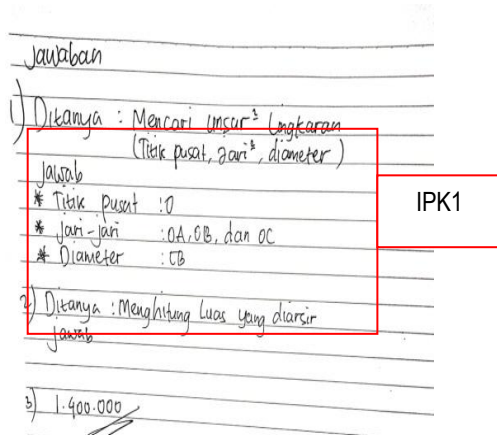 Jawaban
1) Ditanya : Mencari unsur² Lingkaran
(Titik pusat, Jari², diameter)
Jawab
* Titik pusat : O
* Jari-jari : OA, OB, dan OC
* Diameter : CB
2) Ditanya : Menghitung Luas yang diarsir
Jawab
3) 1.400.000
IPK1